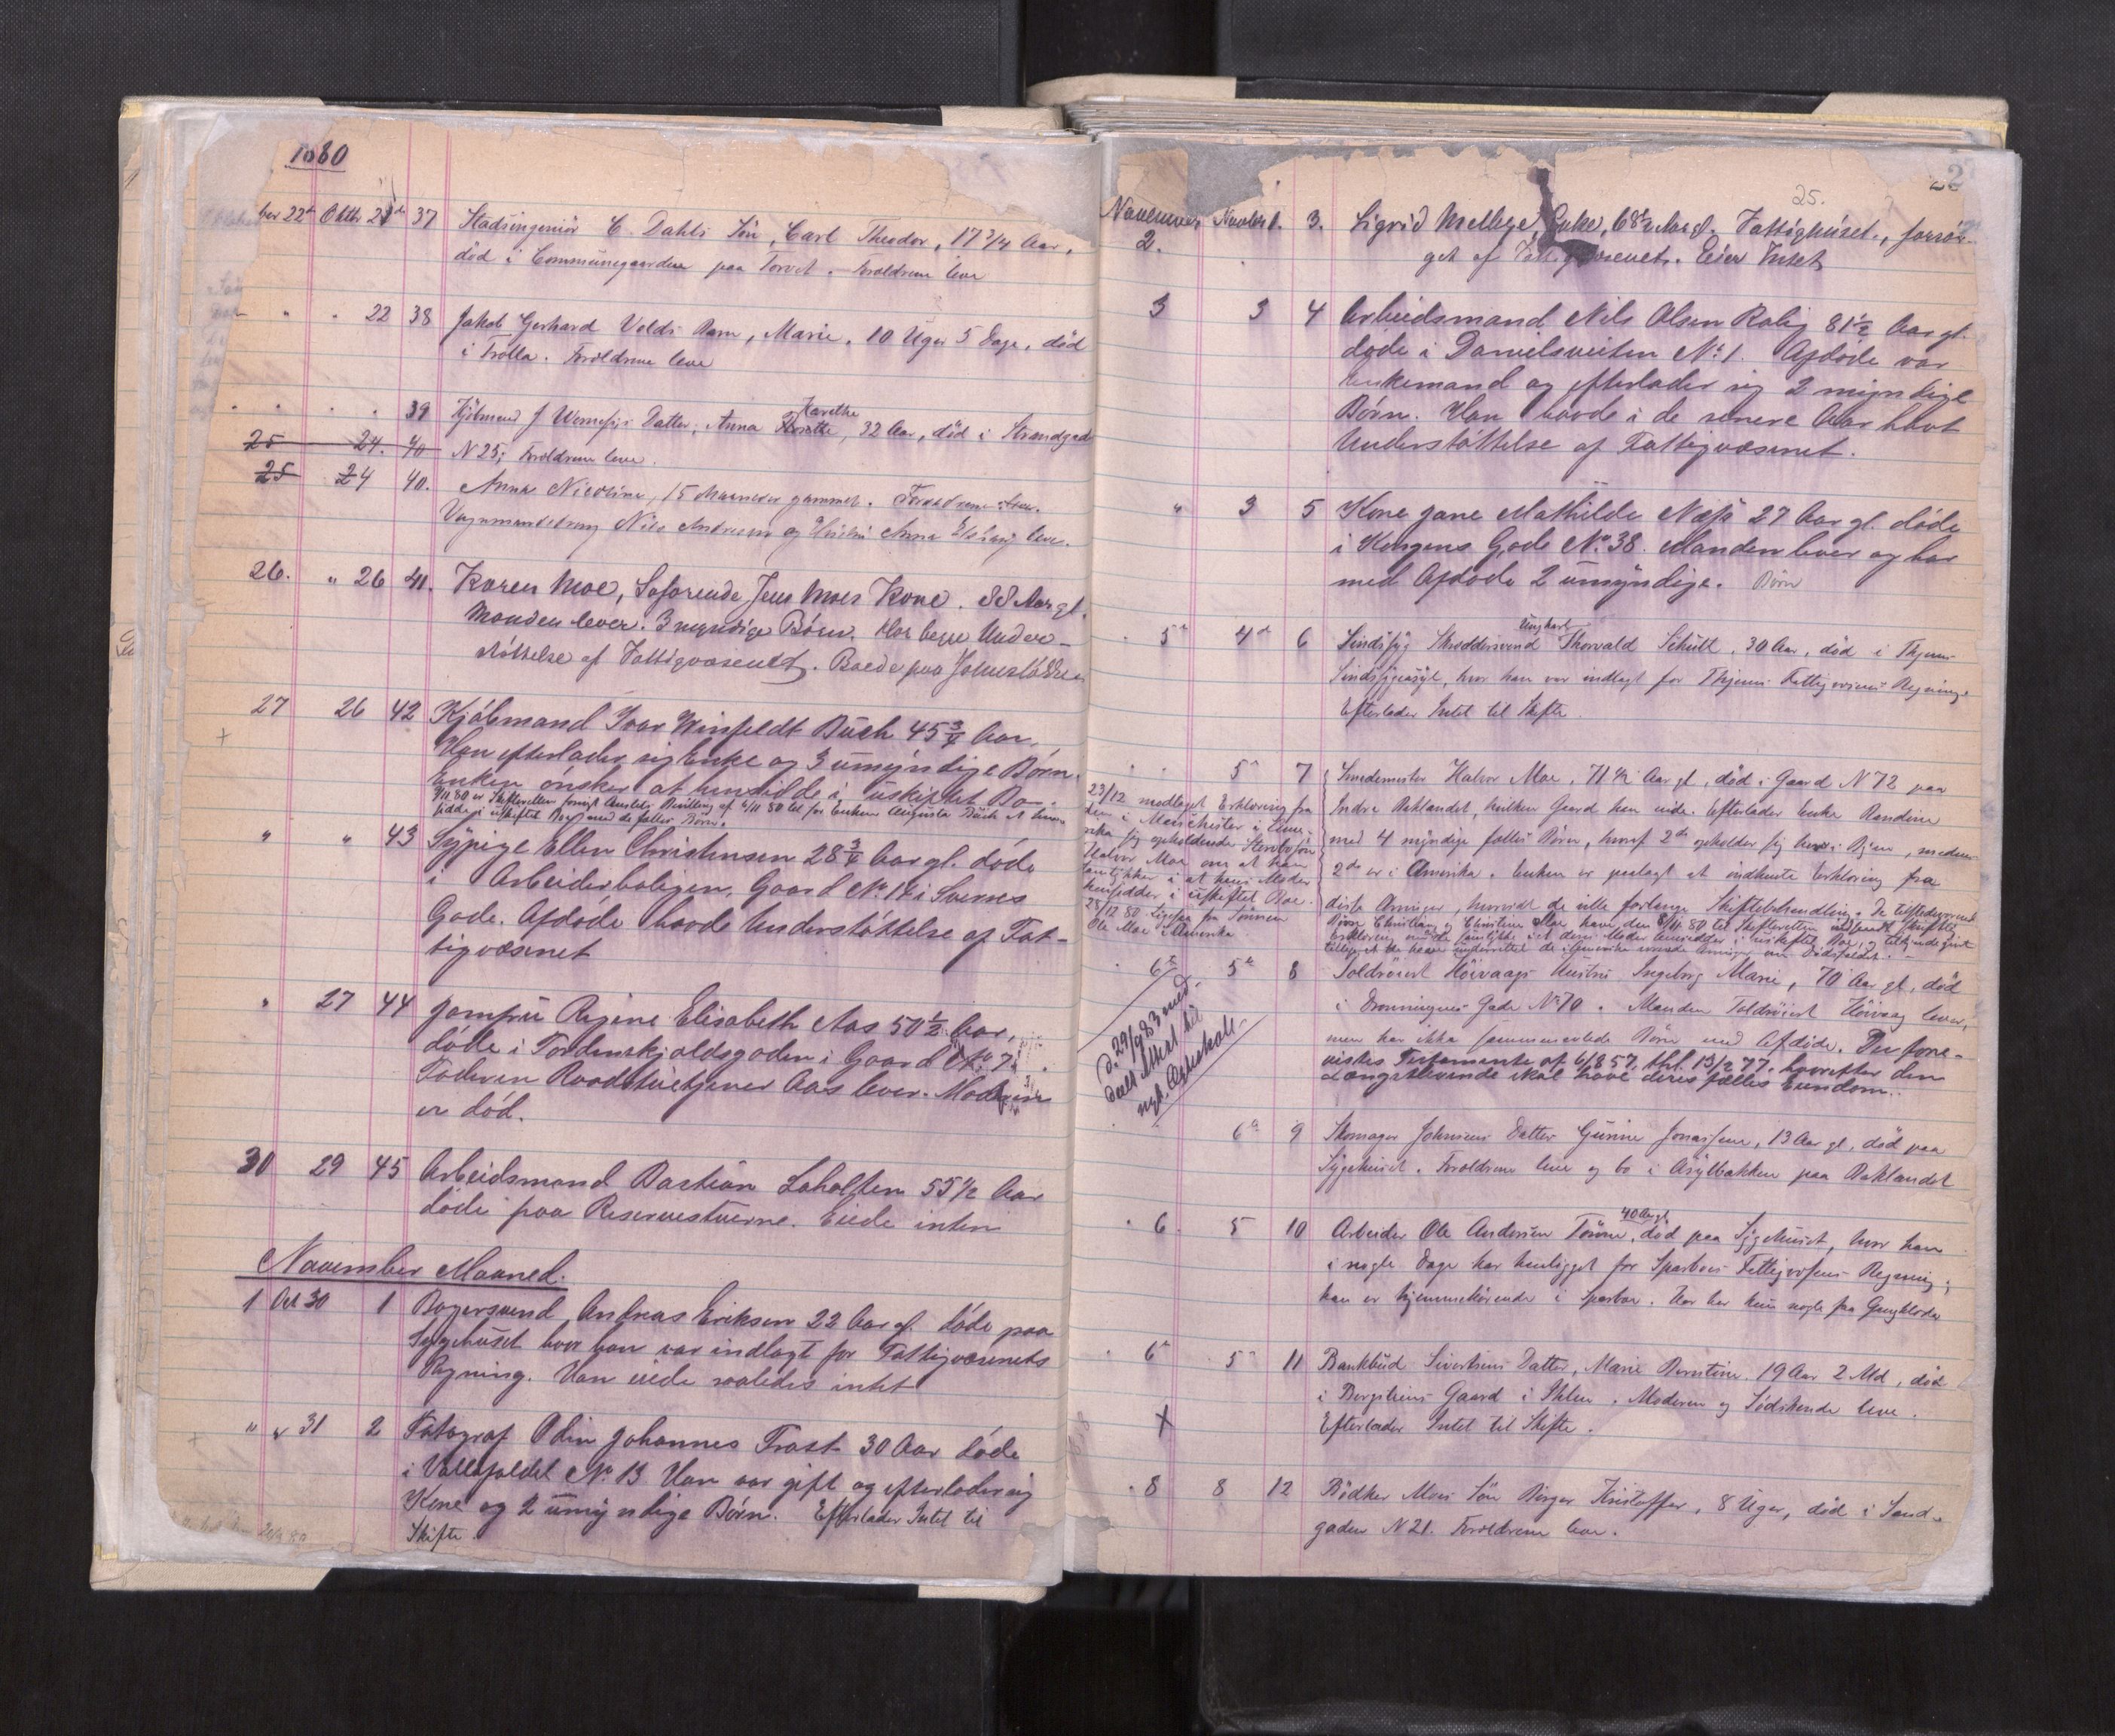 1880
ber 22d Oktbr 21de 37 Stadsingeniør C. Dahls Søn, Carl Theodor, 17 3/4 Aar,
død i Communegaarden paa Torvet. Forældrene leve
" " 22 38 Jakob Gerhard Velds Barn, Marie, 10 Uger 5 Dage, død
i Trolla. Forældrene leve
" " 39 Kjøbmand J Datter, Anna Karethe, 32 Aar, død i Strandgad
25 24. 40 N 25; Forældrene leve.
25 24 40. Anna Nicoline, 15 Maaneder gammel. Forældrene
Nils Andresen og Hustru Anna leve.
26. " 26 41. Karen Moe, Søfarende Jens Moes Kone. 88 Aar gl.
Manden lever. 3 myndige Børn. Har begge Under-
støttelse af Fattigvæsenet. Boede paa
27 26 42 Kjøbmand Ivar Winfeldt Buch 45 3/4 Aar.
Han efterlader sig Enke og 3 umyndige Børn.
Enken ønsker at hensidde i uskiftet Bo-
9/11 80 er Skifteretten forevist Amtets Bevilling af 6/11 80 til for Enken Augusta Buch at hen-
sidde i uskiftet Bo med de fælles Børn.
" " 43 Sypige Ellen Christensen 28 3/4 Aar gl. døde
i Arbeiderboligen, Gaard No 14 i Sverres
Gade. Afdøde havde Understøttelse af Fat-
tigvæsenet
" 27 44 Jomfru Regine Elisabeth Aas 50 1/2 Aar,
døde i Tordenskjoldsgaden i Gaard No 7.
Faderen Raadstuetjener Aas lever. Moderen
er død.
30 29 45 Arbeidsmand Bastian Laholten 55 1/2 Aar
døde paa Reservestuerne. Eiede inten
November Maaned.
1 Okt 30 1 Bagersvend Andreas Eriksen 22 Aar gl. døde paa
Sygehuset hvor han var indlagt for Fattigvæsenets
Regning. Han eiede saaledes intet
" " 31 2 Fotograf Odin Johannes Trast 30 Aar døde
i Vollafaldet No 13. Han var gift og efterlader sig
Kone og 2 umyndige Børn. Efterlader Intet til
Skifte.
25.
2
November Novbr 1. 3. Sigrid Melbye, Enke, 68 1/2 Aar gl. Fattighuset, forsør-
2.
get af Fattigvæsenet. Eier Intet
3 3 4 Arbeidsmand Nils Olsen Rabig 81 1/2 Aar gl.
døde i Danielsveiten No 1. Afdøde var
Enkemand og efterlader sig 2 myndige
Børn. Han havde i de senere Aar havt
Understøttelse af Fattigvæsenet.
" 3 5 Kone Jane Mathilde Næss 27 Aar gl. døde
i Kongens Gade No 38. Manden lever og har
med Afdøde 2 umyndige. Børn
5d 4d 6 Sindssyg Skræddersvend ungkarl Thorvald Schult, 30 Aar, død i Thjems
Sindssygeasyl, hvor han var indlagt for Thjems Fattigvæsens Regning.
Efterlader Intet til Skifte
" " 5d 7 Smedemester Halvor Moe, 71 1/2 Aar gl, død i Gaard N 72 paa
Indre Baklandet, hvilken Gaard han eiede. Efterlader Enke Randine
med 4 myndige fælles Børn, hvoraf 2de opholder sig her i Byen, medens
2de er i Amerika. Enken er paalagt at indhente Erklæring fra
disse Arvinger, hvorvidt de ville forlange Skiftebehandling. De tilstedeværende
Børn Christian og Christine Moe have den 8/11 80 til Skifteretten indsendt skriftlig
Erklæring om at de samtykke i at deres Moder hensidder i uskiftet Bo, tilkjendegivet
tillige at de have underrettet de i Amerika værende Arvinger om Dødsfaldet.
23/12 modtaget Erklæring fra
den i Manchester i Ame-
rika sig opholdende Søn
Halvor Moe om at han
samtykker i at hans Moder
hensidder i uskiftet Bo.
28/12 80 Ligesaa fra Sønnen
Ole Moe i Amerika
6te 5te 8 Toldrorsk Høivaags Hustru Ingeborg Marie, 70 Aar gl, død
i Dronningens Gade No 70. Manden Toldrorsk Høivaag lever,
men har ikke sammenavlede Børn med Afdøde. Der fore-
vistes Testamente af 6/8 57, thl. 13/2 77, hvorefter den
Længstlevende skal have deres fælles Eiendom.
d. 29/9 83 med-
delt Attest til
6te 9 Skomager Johnsens Datter Gurine Jonassen, 13 Aar gl, død paa
Sygehuset. Forældrene leve og bo i Asylbakken paa Baklandet
6 5 10 Arbeider Ole Andersen 40 Aar gl, død paa Sygehuset, hvor han
i nogle Dage har henligget for Sparboens Fattigvæsens Regning;
han er hjemmehørende i Sparboe. Har her kun nogle faa Gangklæder
6te 5te 11 Bankbud Sivertsens Datter, Marie Berntine, 19 Aar 2 Md, død
i Gaard i Ihlen. Moderen og Sødskende leve.
X Efterlader Intet til Skifte.
8 8 12 Bødker Moes Søn Birger Kristoffer, 8 Uger, død i Sand-
gaden N 21. Forældrene leve.